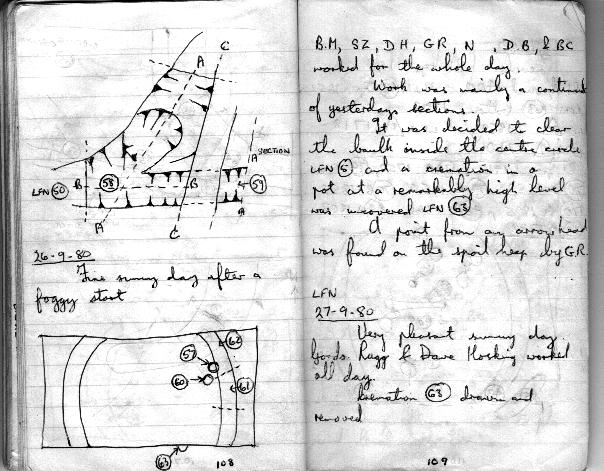 C
A
A
SECTION
LFN 50
58
B
B
59
A
A
C
26-9-80
Fine sunny day after a
foggy start
62
57
60
61
63
108
B.M, SZ, DH, GR, N , D.B, & BC
worked for the whole day.
Work was mainly a continued
of yesterdays sections.
It was decided to clear
the baulk inside the centre circle
LFN 5 and a cremation in a
pot at a remarkably high level
was uncovered LFN 63
A point from an arrowhead
was found on the spoil heap by GR.
LFN
27-9-80
Very pleasant sunny day.
Rugg & Dave Hosking worked
all day.
Cremation 63 drawn and
removed
109